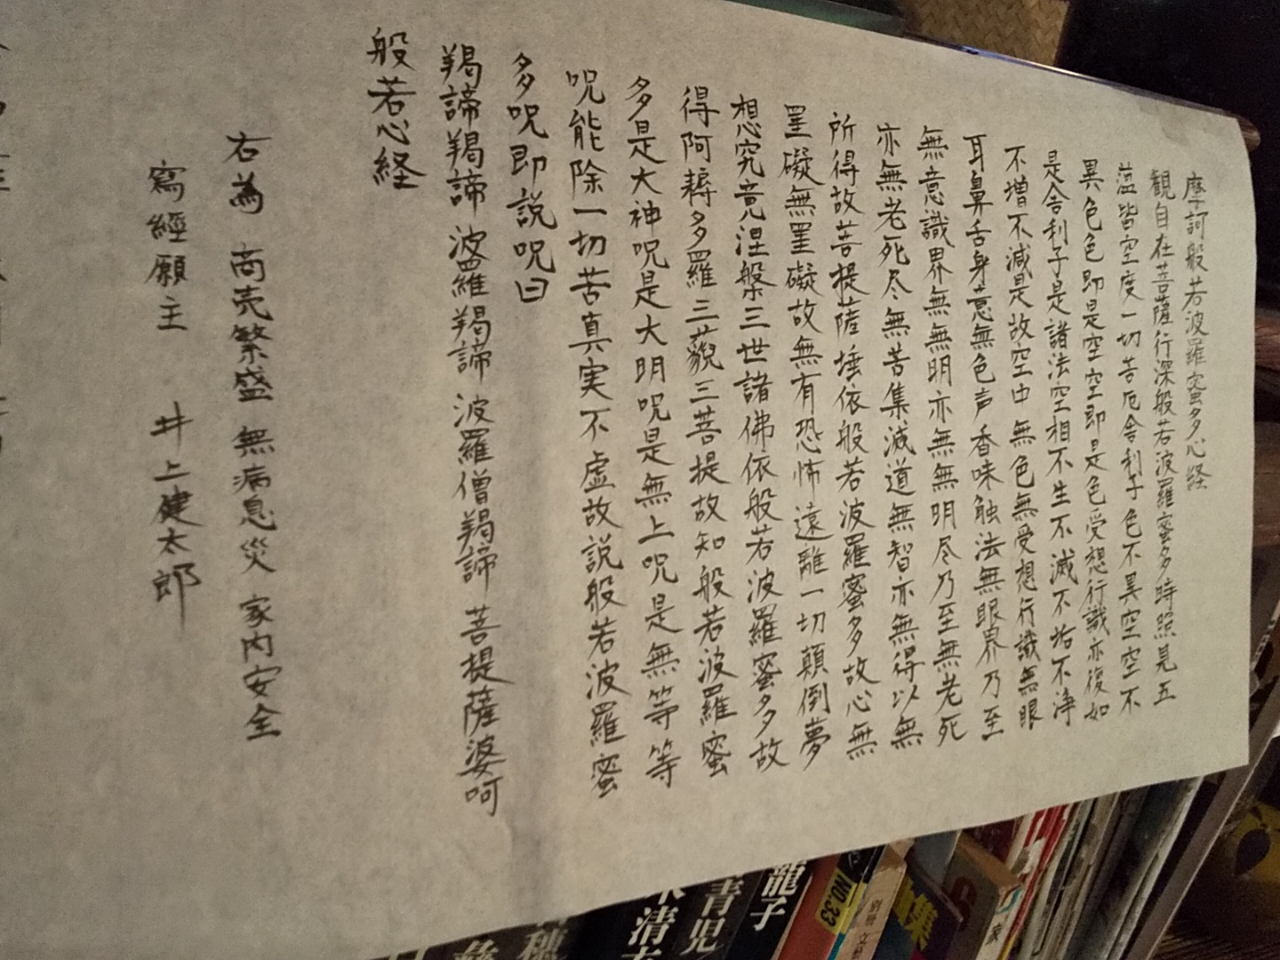 摩訶般若波羅蜜多心経
観自在菩薩行深般若波羅蜜多時照見五
蕴皆空度一切苦厄舎利子色不異空空不
異色色即是空空即是色受想行識亦復如
是舎利子是諸法空相不生不滅不垢不浄
不増不減是故空中無色無受想行識無眼
耳鼻舌身意無色声香味触法無眼界乃至
無意識界無無明亦無無明尽乃至無老死
亦無老死尽無苦集滅道無智亦無得以無
所得故菩提薩埵依般若波羅蜜多故心無
罣礙無罣礙故無有恐怖遠離一切顛倒夢
想究竟涅槃三世諸佛依般若波羅蜜多故
得阿耨多羅三藐三菩提故知般若波羅蜜
多是大神呪是大明呪是無上呪是無等等
呪能除一切苦真実不虚故説般若波羅蜜
多呪即説呪曰
羯諦羯諦波羅羯諦波羅僧羯諦菩提薩婆呵
般若心経
右為 商売繁盛 無病息災 家内安全
寫經願主 井上健太郎
龍子
青児
清
穂
NO.33
別冊
集
家